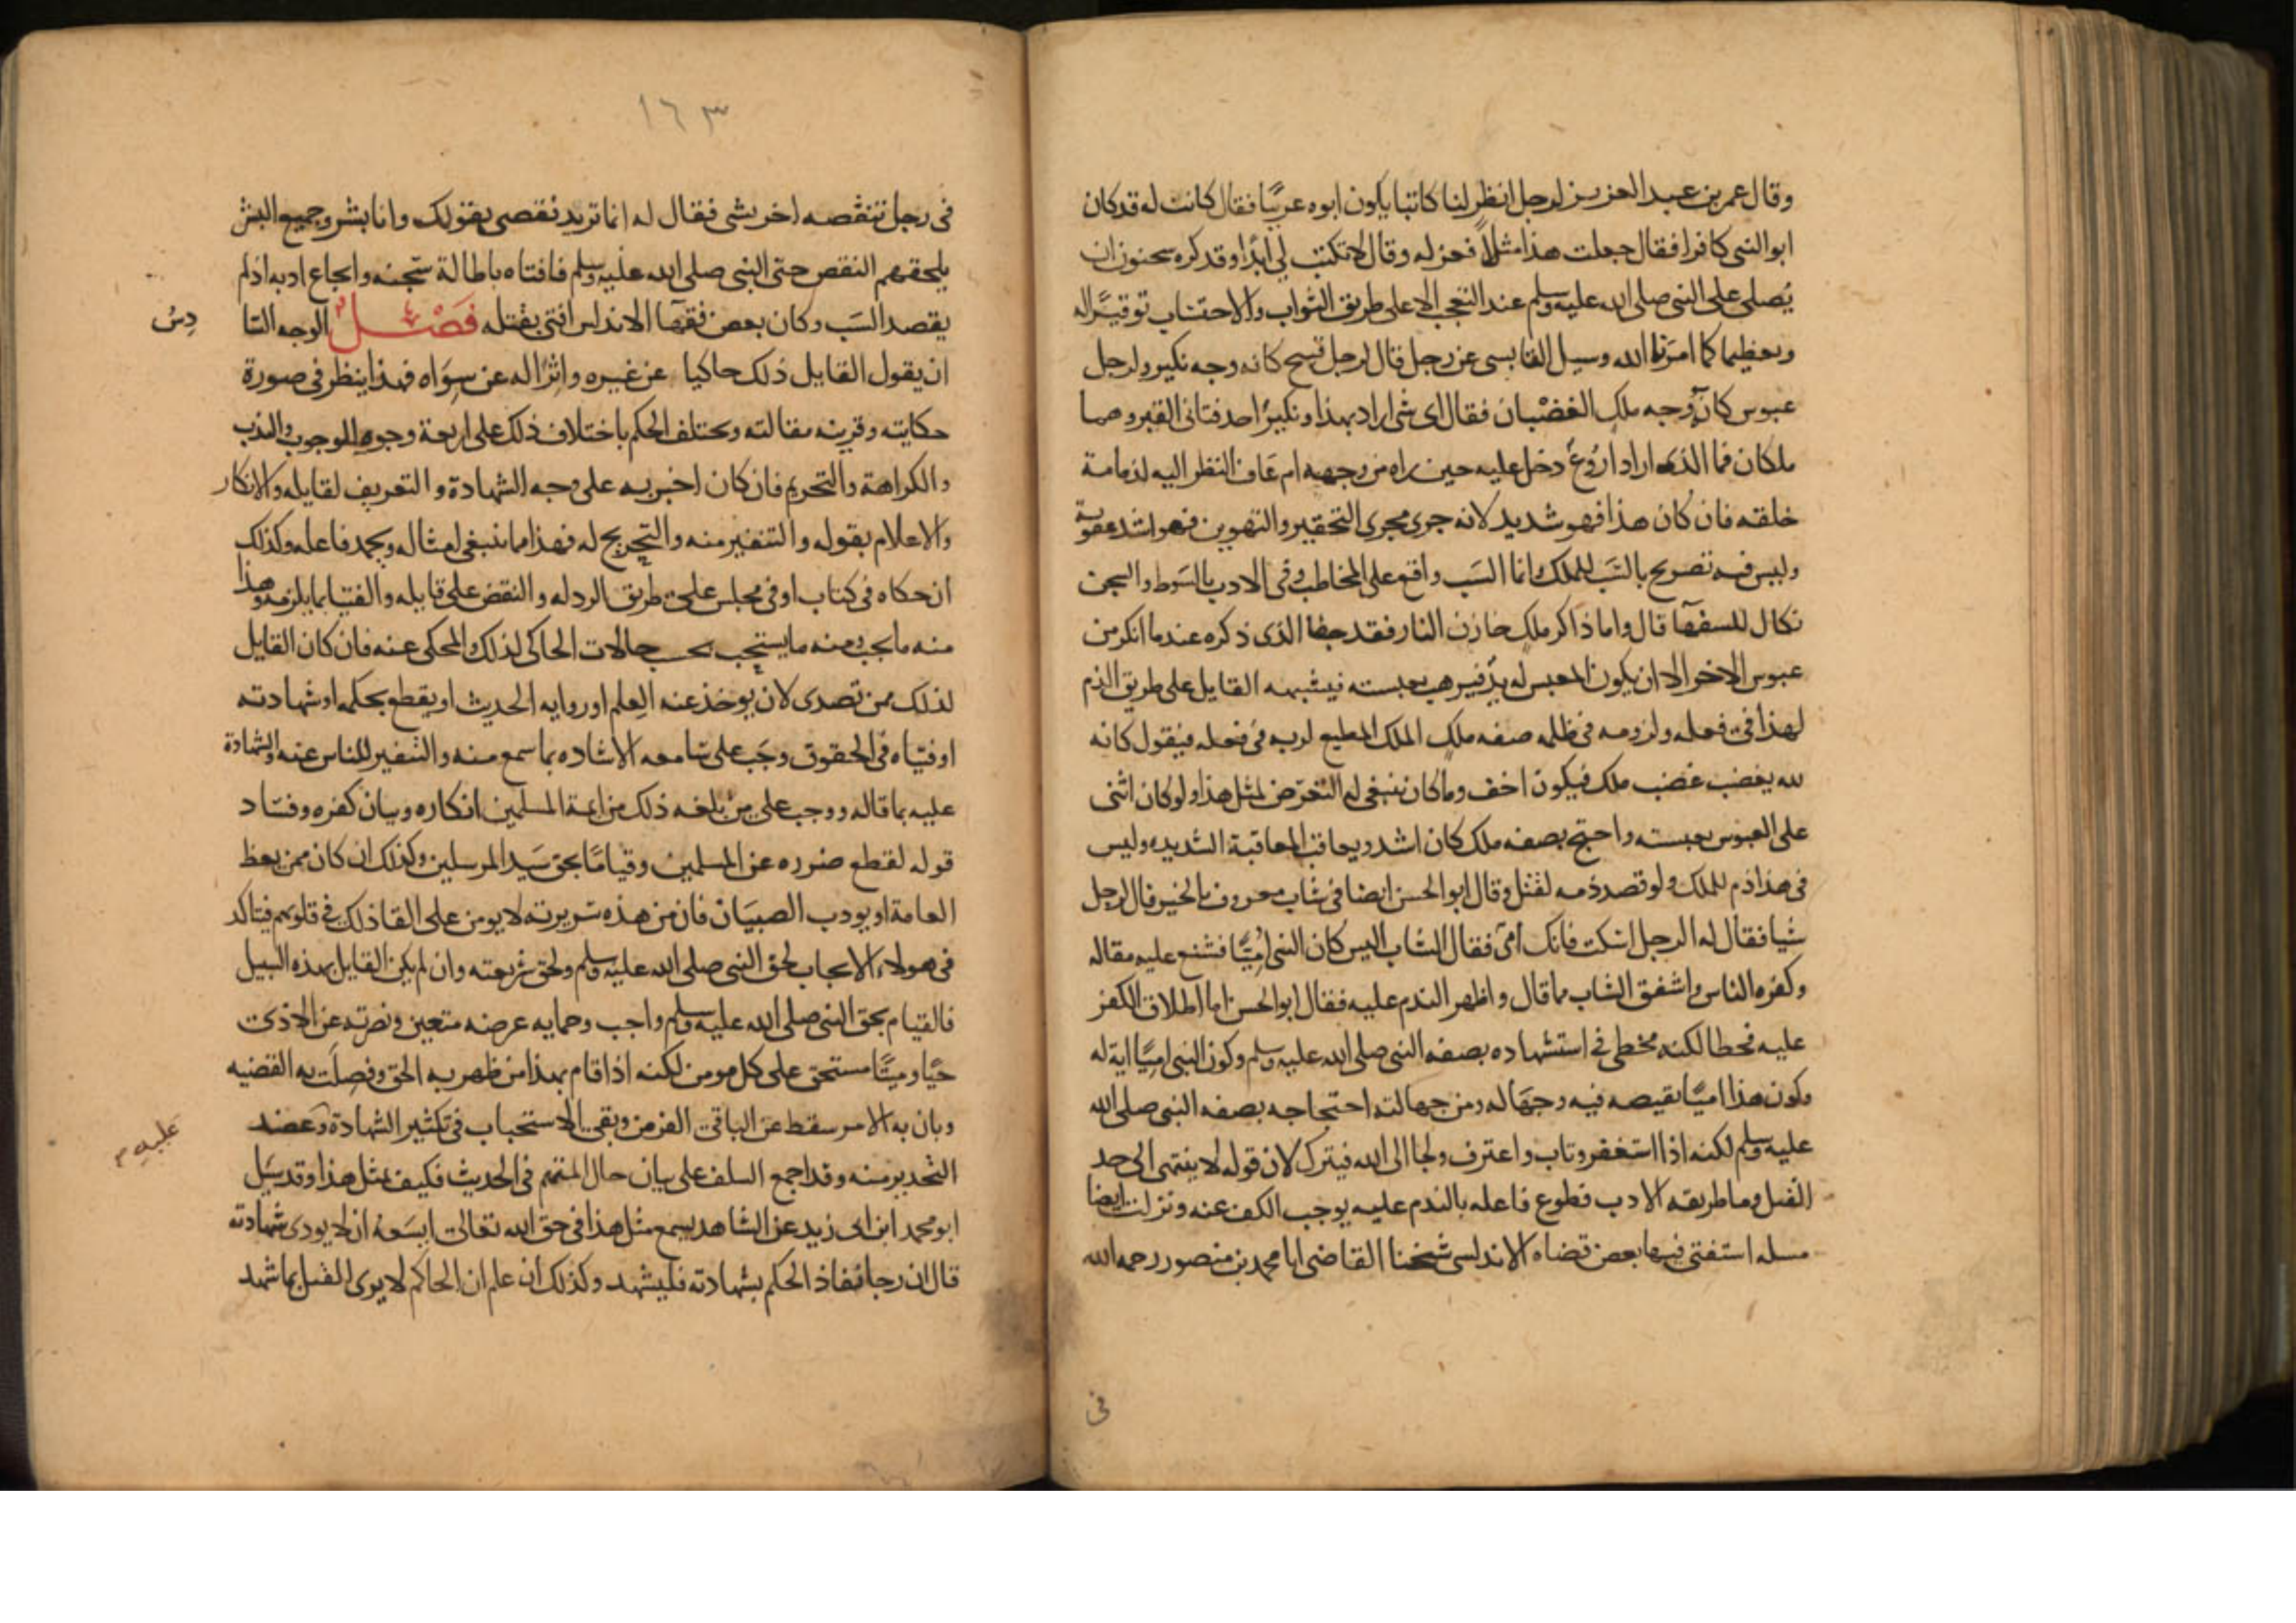 وقال عمر بن عبد العزيز لرجل انظر لنا كاتبا يكون ابوه عربيًا فقال كاتب له قد كان
ابو النبي كافرا فقال جعلت هذا مثلاً فعزله وقال لا تكتب لي ابدًا وقد كره سحنون ان
يُصلى على النبي صلى الله عليه وسلم عند التعجب الا على طريق الثواب والاحتساب توقيرًا له
وتعظيما كما امرنا الله وسيل القابسي عن رجل قال لرجل قبيح كانه وجه نكير ولرجل
عبوس كانه وجه ملك الغضبان فقال اي شي اراد بهذا ونكيرُ احد فتاني القبر وهما
ملكان فما الذي اراد ارُوعٌ دخل عليه حين راه من وجهه ام عَاف النظر اليه لذمامة
خلقه فان كان هذا فهو شديد لانه جرى مجرى التحقير والتهوين فهو اشد عقوبة
وليس فيه تصريح بالسَّب للملك وانما السَب واقع على المخاطب وفي الادب بالسَوط والسجن
نكال للسفهآ قال واما ذاكر ملك خازن النار فقد جفا الذي ذكره عند ما انكر من
عبوس الاخر الا ان يكون المعبس له يد فيرهب بعبسته فيشبهه القايل على طريق الذم
لهذا في فعله ولزومه في ظلمه صفه ملك الملك المطيع لربه في فعله فيقول كانه
لله يغضب غضب ملك فيكون اخف وما كان ينبغي له التعرّض لمثل هذا ولو كان اثنى
على العبوس بعبسته واحتج بصفه ملك كان اشد ويعاقب المعاقبة الشديده وليس
في هذا ذم للملك ولو قصد ذمه لقتل وقال ابو الحسن ايضا في شاب معروف بالخير قال لرجل
شيا فقال له الرجل اسكت فانك اُمّى فقال الشاب اليس كان النبي اُمِّيًّا فشنع عليه مقاله
وكفره الناس واشفق الشاب مما قال واظهر الندم عليه فقال ابو الحسن اما اطلاق الكفر
عليه فخطا لكنه مخطى في استشهاده بصفه النبي صلى الله عليه وسلم وكون النبي اميًّا اية له
وكون هذا اميًّا نقيصه فيه وجهَاله ومن جهالته احتجاجه بصفه النبي صلى الله
عليه وسلم لكنه اذا استغفر وتاب واعترف ولجا الى الله فيترك لان قوله لا ينتهى الى حد
القتل وما طريقه الادب فطوع فاعله بالندم عليه يوجب الكف عنه ونزلت ايضا
مسله استفتى فيها بعض قضاه الاندلس شيخنا القاضي ابا محمد بن منصور رحمه الله
في
١٦٣
في رجل تنقصه اخر بشى فقال له انما تريد نقصى بقولك وانا بشر وجميع البشر
يلحقهم النقص حتى النبي صلى الله عليه وسلم فافتاه باطالة سجنه وايجاع ادبه اذ لم
يقصد السَب وكان بعض فقهآ الاندلس افتى بقتله فَصْل الوجه السَا
دِسُ
ان يقول القايل ذلك حاكيا عن غيره واثرًا له عن سِوَاه فهذا ينظر في صورة
حكايته وقرينه مقالته ويختلف الحكم باختلاف ذلك على اربعة وجوه الوجوب والندب
والكراهة والتحريم فان كان اخبر به على وجه الشهادة والتعريف لقايله والانكار
والاعلام بقوله والتنفير منه والتجريح له فهذا مما ينبغى امتثاله ويحمد فاعله وكذلك
ان حكاه في كتاب او في مجلس على طريق الرد له والنقض على قايله والفتيا بما يلزمه وهذا
منه ما يجب ومنه ما يستحب بحسب حالات الحاكي لذلك والمحكي عنه فان كان القايل
لذلك ممن تصدى لان يوخذ عنه العِلم او روايه الحديث او يقطع بحكمه او شهادته
او فتيَاه في الحقوق وجَب على سَامعه الاشاده بما سمع منه والتنفير للناس عنه والشهادة
عليه بما قاله ووجب على من بلغه ذلك من ايمة المسلمين انكاره وبيان كفره وفساد
قوله لقطع ضرره عن المسلمين وقيامًا بحق سَيد المرسلين وكذلك ان كان ممن يعظ
العامة او يودب الصبيَان فان من هذه سَريرته لا يومن على القا ذلك في قلوبهم فيتاكد
في هولاء الايجاب لحق النبي صلى الله عليه وسلم ولحق شريعته وان لم يكن القايل بهذه السبيل
فالقيام بحق النبي صلى الله عليه وسلم واجب وحمايه عرضه متعين ونصرته عن الاذى
حيًّا وميتًا مستحق على كل مومن لكنه اذا قام بهذا من ظهر به الحق وفصِلَت به القضيه
وبان به الامر سقط عن الباقي الفرض وبقى الاستحباب في تكثير الشهادة وَعضد
عَليهِ م
التحذير منه وقد اجمع السلف على بيان حال المتهم في الحديث فكيف بمثل هذا وقد سيَل
ابو محمد ابن ابي زيد عن الشاهد يسمع مثل هذا في حق الله تعالى ايسَعهُ ان لا يودى شهادته
قال ان رجا نفاذ الحكم بشهادته فليشهد وكذلك ان علم ان الحاكم لا يرى القتل بما شهد